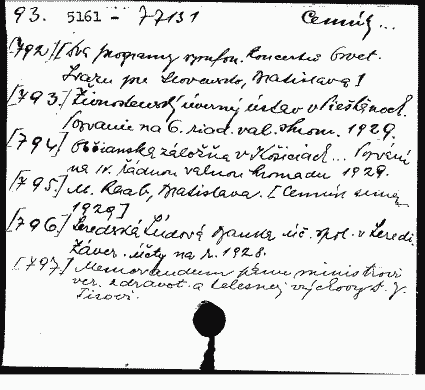 93. 5161 - 77131 Cenník...
[792] [Dva programy symfon. koncertu Osvet.
Svazu pre Slovensko, Bratislava]
[793] Živnostenský úverný ústav v Piešťanoch.
Pozvanie na 6. riad. val. shrom. 1929.
[794] Občianska záložňa v Košiciach... Pozvání
na IV. řádnou valnou hromadu 1929.
[795] M. Raab, Bratislava. [Cenník
1929]
[796] Seredská Ľudová Banka úč. spol. v Seredi.
Záver. účty na r. 1928.
[797] Memorandum pánu ministrovi
ver. zdravot. a telesnej výchovy Dr. J.
Tisovi.